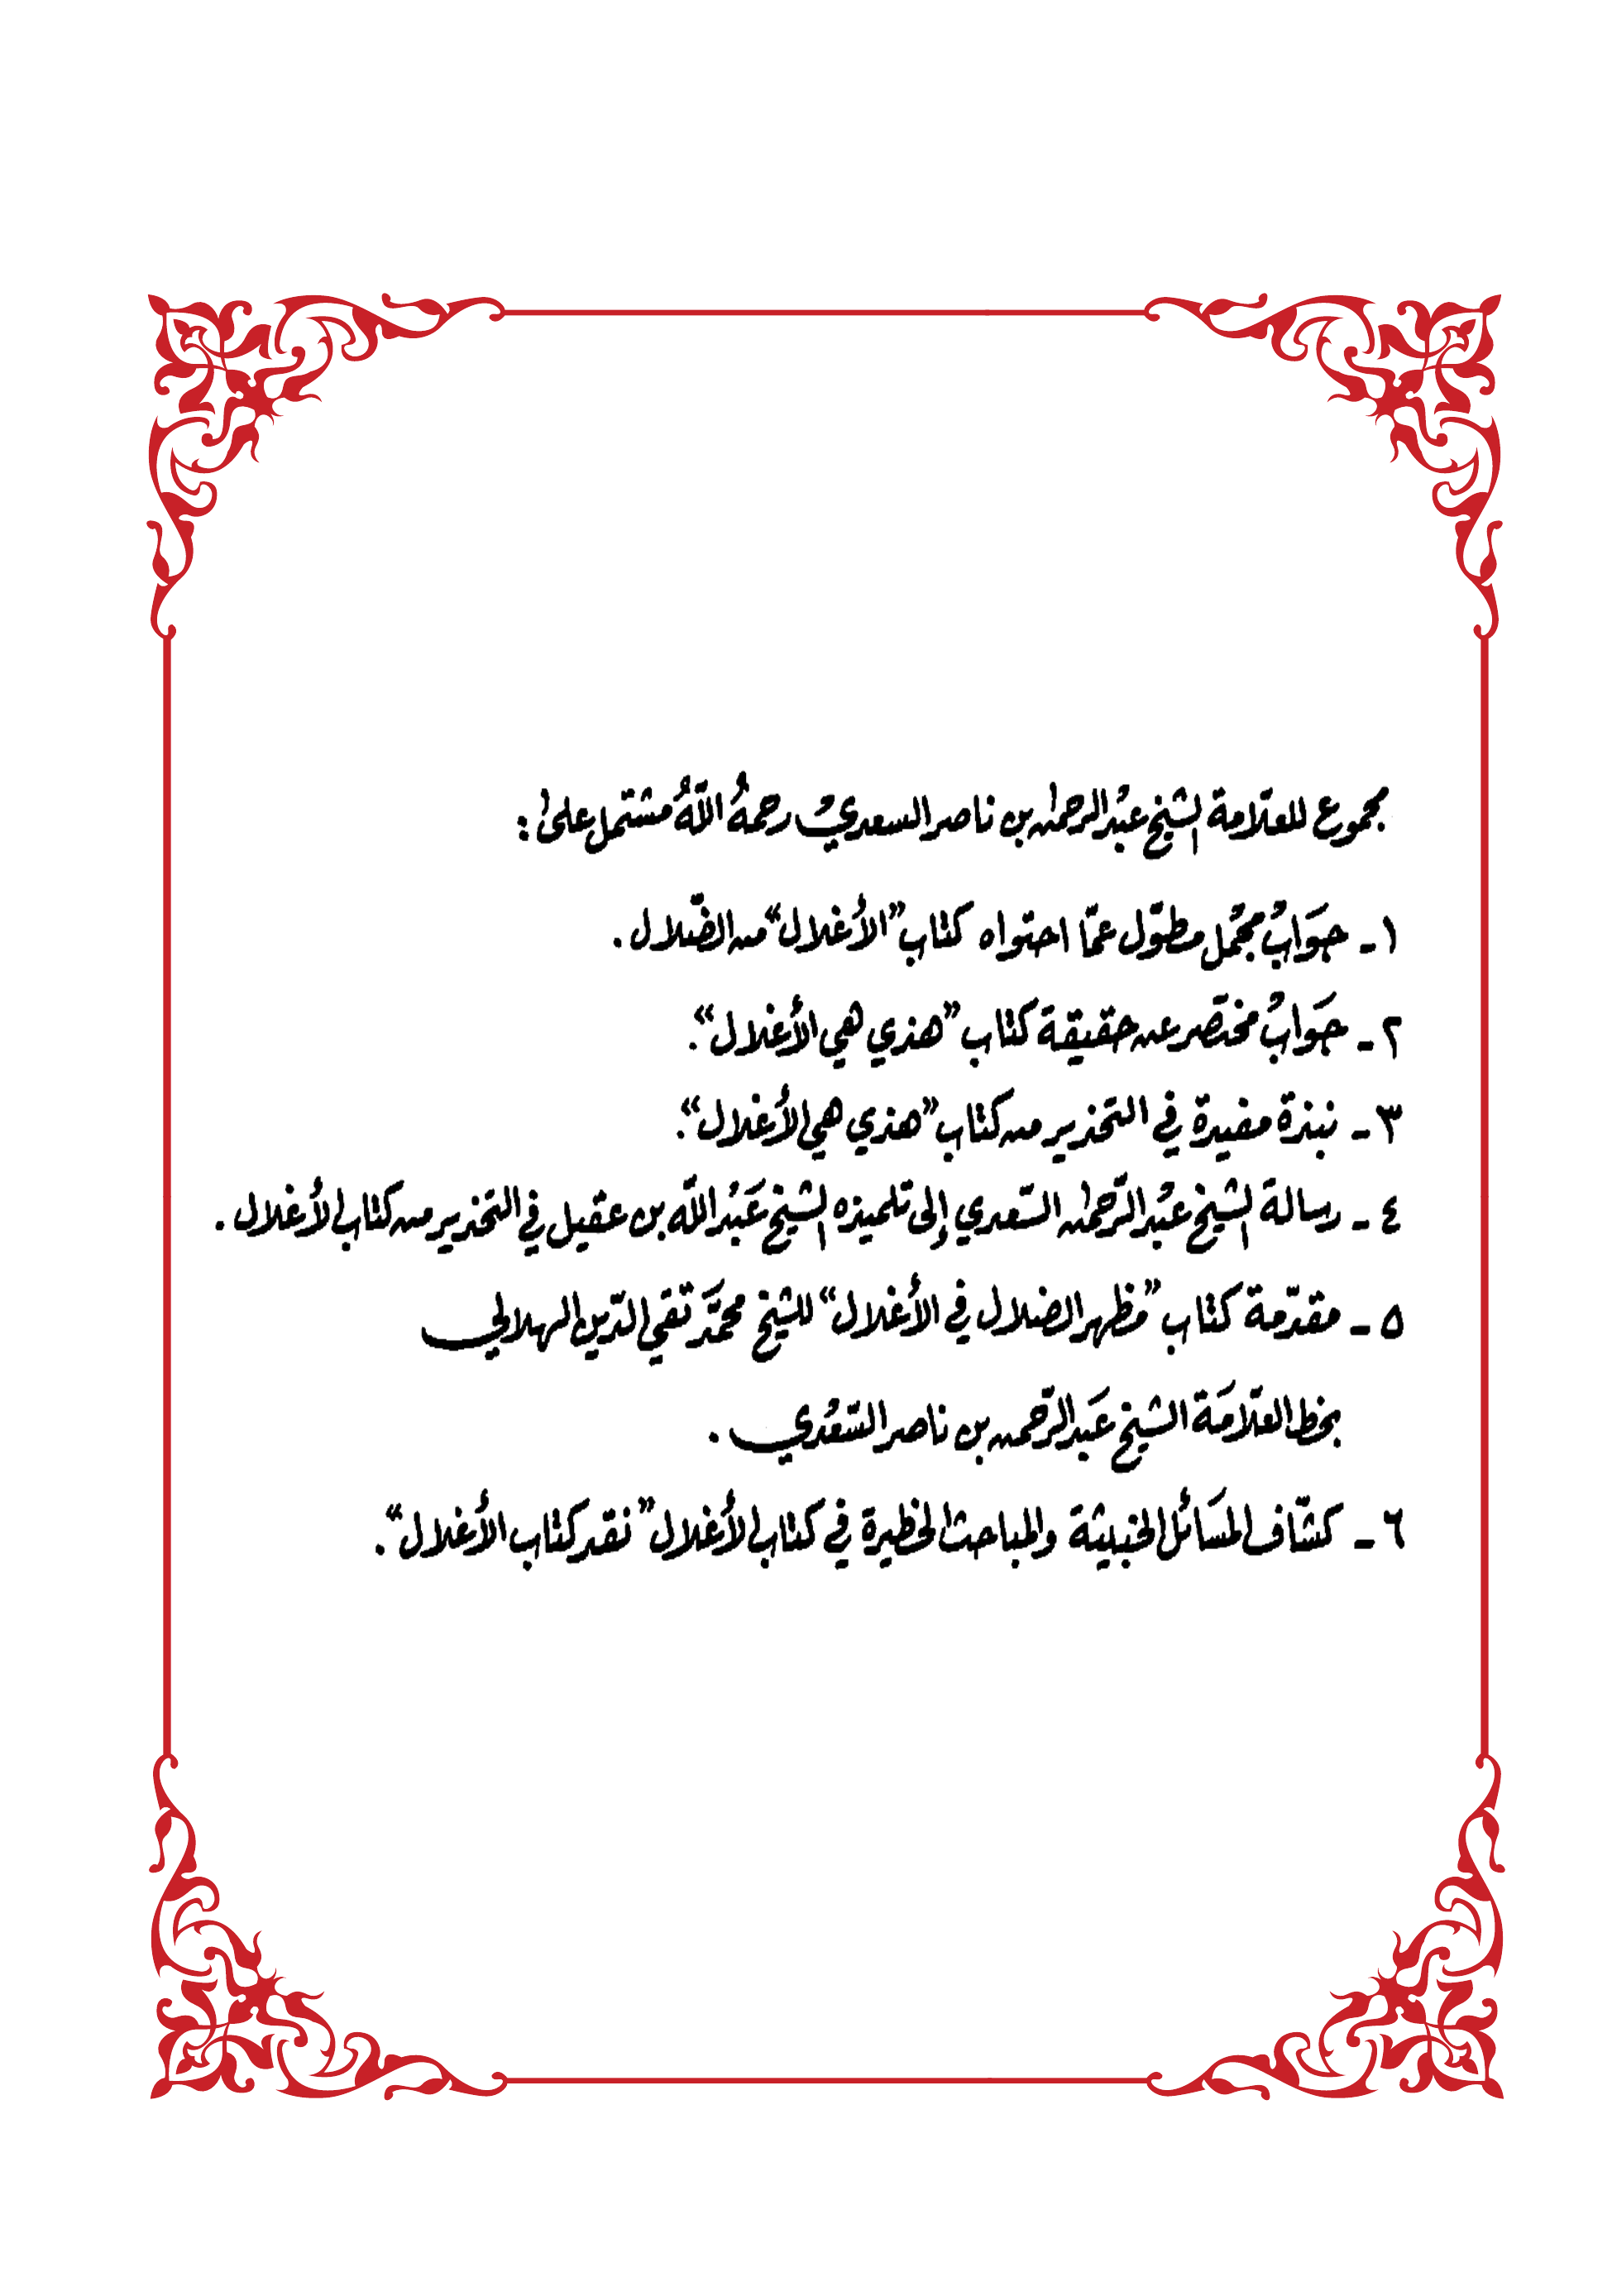 مجموع للعلّامة الشيخ عبْد الرحمٰن بن ناصر السعديُّ رحمهُ اللّهُ مشتمل علىٰ :
١ - جَوَابٌ مُجْمل مطوّل عمّا احتواه كتاب "الأغلال" من الضّلال .
٢ - جَوَابٌ مختصَر عن حقيقة كتاب "هذي هي الأغلال" .
٣ - نبذة مفيدة في التحذير من كتاب "هذي هي الأغلال" .
٤ - رسالة الشيخ عبْد الرّحمٰن السّعدي إلى تلميذه الشيخ عَبْد اللّه بن عقيل في التحذير من كتاب الأغلال .
٥ - مقدّمة كتاب "مظهر الضلال في الأغلال" للشيخ محمَّد تقي الدّين الهلالي
بخط العلّامَة الشيخ عَبد الرّحمن بن ناصر السّعْدي .
٦ - كشّاف المسَائل الخبيثة والمباحث الخطيرة في كتاب الأغلال "نقد كتاب الأغلال" .